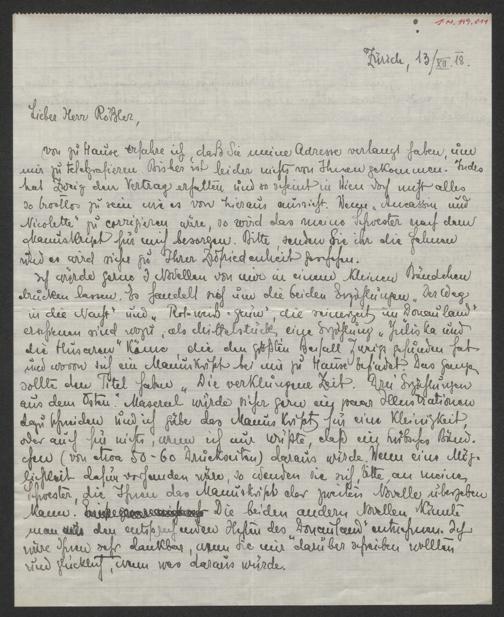 Zürich, 13/XII. 18.
Lieber Herr Rößler,
von zu Hause erfahre ich, daß Sie meine Adresse verlangt haben, um
mir zu telegrafieren. Bisher ist leider nichts von Ihnen gekommen. Indes
hat Zweig den Vertrag erhalten und so scheint in Wien doch nicht alles
so trostlos zu sein wie es von hieraus aussieht. Wenn „Aucassin und
Nicolette" zu corrigieren wäre, so wird das meine Schwester nach dem
Manuskript für mich besorgen. Bitte, senden Sie ihr die Fahnen
und es wird sicher zu Ihrer Zufriedenheit geschehen.
Ich würde gerne 3 Novellen von mir in einem kleinen Bändchen
drucken lassen. Es handelt sich um die beiden Erzählungen „Der Weg
in die Nacht" und „Rot-weiß-grün", die seinerzeit im Donauland
erschienen sind wozu, als Mittelstück, eine Erzählung „Juliska und
die Husaren" käme, die den größten Beifall Zweigs gefunden hat
und wovon sich ein Manuskript bei mir zu Hause befindet. Das Ganze
sollte den Titel haben „Die verklungene Zeit. Drei Erzählungen
aus dem Osten." Masereel würde sicher gern ein paar Illustrationen
dazu schneiden und ich gäbe das Manuskript für eine Kleinigkeit,
oder auch für nichts, wenn ich nur wüßte, daß ein hübsches Bänd-
chen (von etwa 50-60 Druckseiten) daraus würde. Wenn eine Mög-
lichkeit dafür vorhanden wäre, so wenden Sie sich bitte, an meine
Schwester, die Ihnen das Manuskript der zweiten Novelle übergeben
kann. Die beiden andern Novellen könnte
man den entsprechenden Heften des „Donauland" entnehmen. Ich
wäre Ihnen sehr dankbar, wenn Sie mir darüber schreiben wollten
und glücklich, wenn was daraus würde.